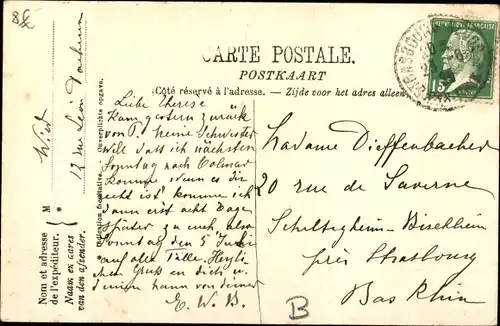 8€
CARTE POSTALE.
POSTKAART
(Côté réservé à l'adresse. – Zijde voor het adres alleen
15
Nom et adresse de l'expéditeur.
M
Naam en adres van den afzender.
*
Indication facultative. – Onverplichte opgave.
13 rue Léon
Liebe Therese
Kam gestern zurück
von P. meine Schwester
will dass ich nächsten
Sonntag nach Colmar
komme wenn es dir
recht ist komme ich
dann erst acht Tage
später zu euch, also
Sonntag den 5 Juli
auf alle Fälle. Herzli-
chen Gruss an dich u.
deinen Mann von deiner
E. W. B.
Madame Dieffenbacher
20 rue de Saverne
Schiltigheim-Bischheim
près Strasbourg
Bas Rhin
B